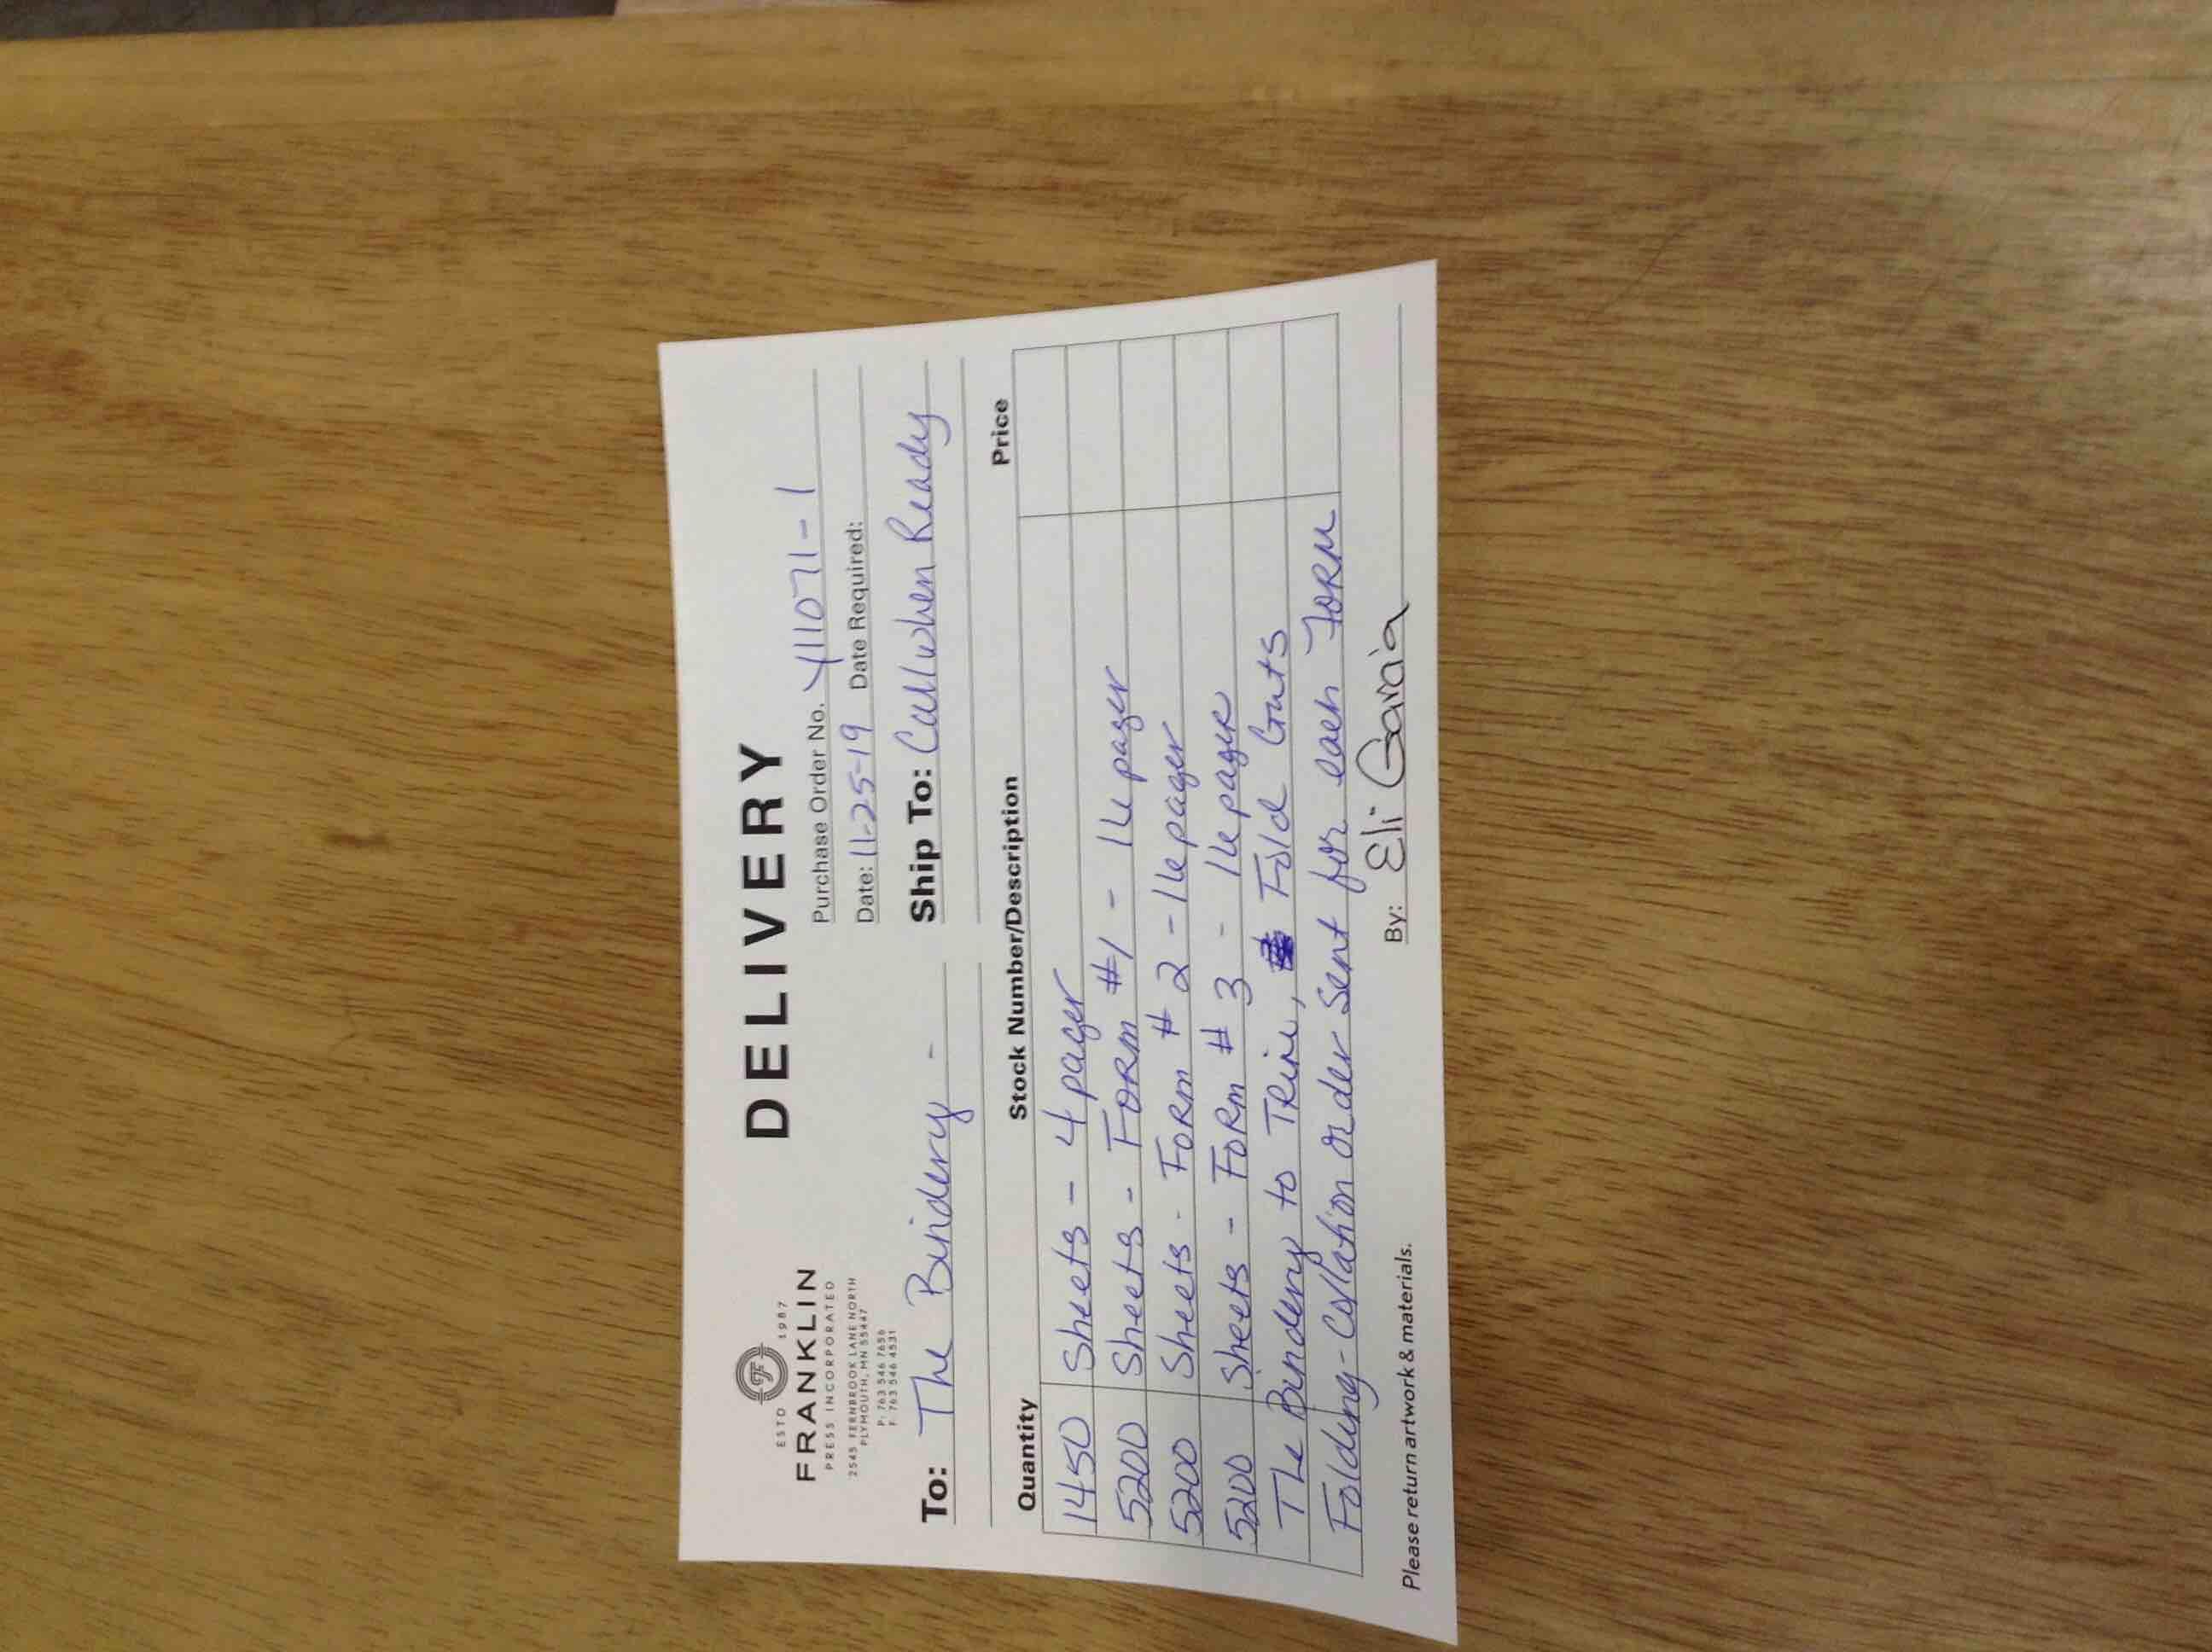 ESTD 1987
FRANKLIN
PRESS INCORPORATED
2545 FERNBROOK LANE NORTH
PLYMOUTH, MN 55447
P: 763 546 7656
F: 763 546 4531
DELIVERY
Purchase Order No. Y11071-1
Date: 11-25-19 Date Required:
To: The Bindery -
Ship To: Call when Ready
Quantity Stock Number/Description Price
1450 Sheets - 4 pager
5200 Sheets - FORM #1 - 16 pager
5200 Sheets - FORM # 2 - 16 pager
5200 Sheets - FORM # 3 - 16 pager
The Bindery to TRim, Fold Guts
Folding - Collation order Sent for each FORM
Please return artwork & materials.
By: Eli Garcia